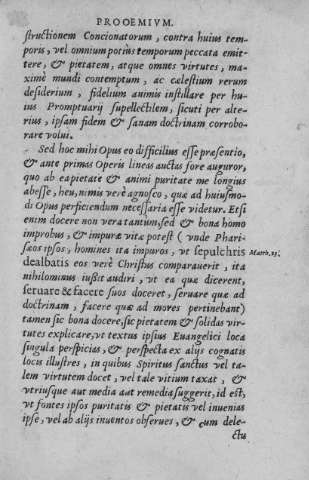 PROOEMIVM.
structionem Concionatorum, contra huius tem-
poris, vel omnium potiùs temporum peccata emit-
tere, & pietatem, atque omnes virtutes, ma-
ximè mundi contemptum, ac cælestium rerum
desiderium, fidelium animis instillare per hu-
ius Promptuarij supellectilem, sicuti per alte-
rius, ipsam fidem & sanam doctrinam corrobo-
rare volui.
Sed hoc mihi Opus eo difficilius esse præsentio,
& ante primas Operis lineas auctas fore auguror,
quo ab eapietate & animi puritate me longius
abesse, heu, nimis verè agnosco, quæ ad huiusmo-
di Opus perficiendum necessaria esse videtur. Etsi
enim docere non vera tantum, sed & bona homo
improbus, & impuræ vitæ potest (vnde Phari-
sæos ipsos, homines ita impuros, vt sepulchris
Matth. 23.
dealbatis eos verè Christus comparauerit, ita
nihilominus iußit audiri, vt ea quæ dicerent,
seruare & facere suos doceret, seruare quæ ad
doctrinam, facere quæ ad mores pertinebant)
tamen sic bona docere, sic pietatem & solidas vir-
tutes explicare, vt textus ipsius Euangelici loca
singula perspicias, & perspecta ex alijs cognatis
locis illustres, in quibus Spiritus sanctus vel ta-
lem virtutem docet, vel tale vitium taxat, &
vtriusque aut media aut remedia suggerit, id est,
vt fontes ipsos puritatis & pietatis vel inuenias
ipse, vel ab alijs inuentos obserues, & cum dele-
ctu